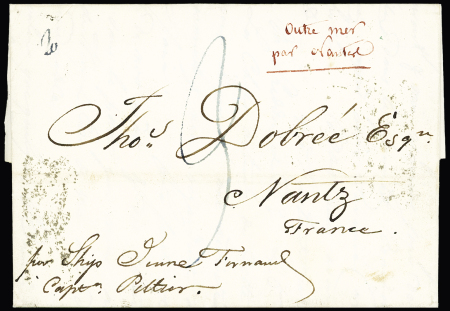 20
Outre mer
par Nantes
3
Thos. Dobrée Esqre.
Nantz
France.
per Ship Jeune Fernand
Captn. Peltier.